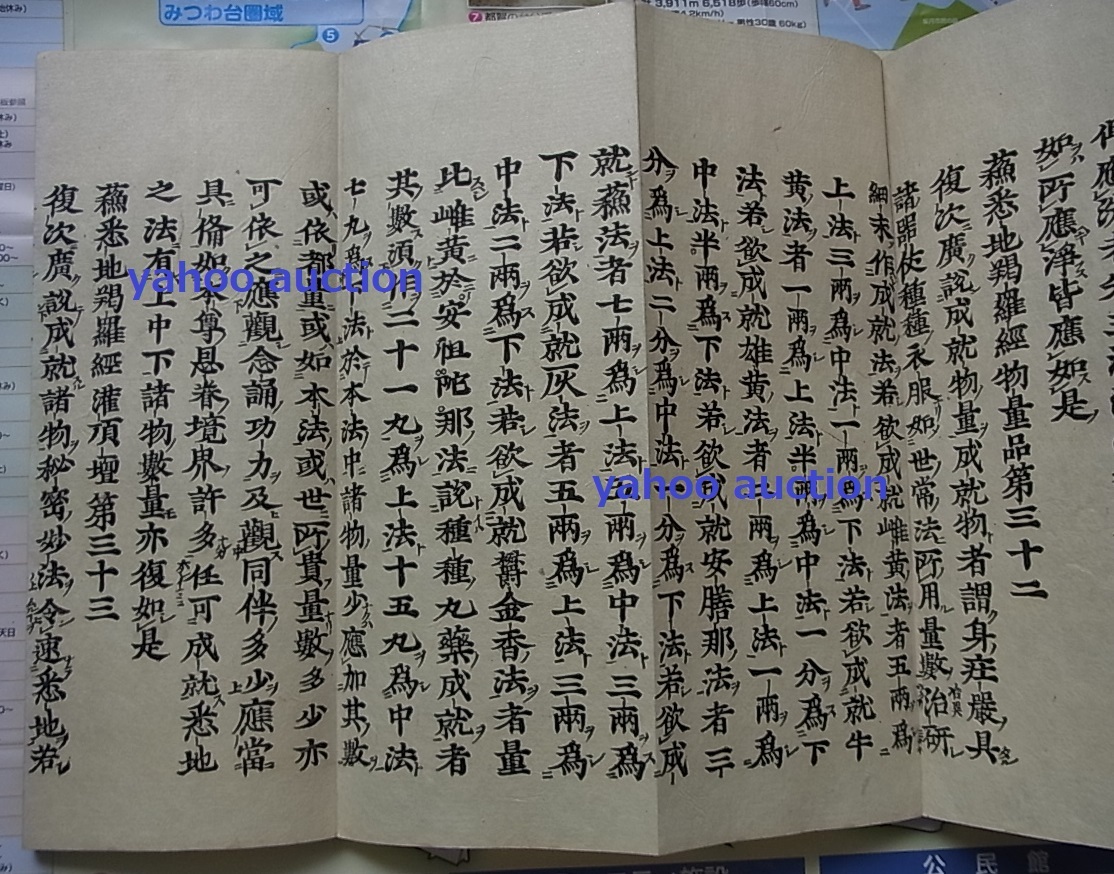 如所應淨皆應如是
蘓悉地羯羅經物量品第三十二
復次廣說成就物量成就物者謂身疘嚴具
諸器仗種種衣服如世常法所用量數治研
細末作成就法若欲成就雌黃法者五兩爲
上法三兩爲中法一兩爲下法若欲成就牛
黃法者一兩爲上法半兩爲中法一分爲下
法若欲成就雄黃法者一兩爲上法一兩爲
中法半兩爲下法若欲成就安膳那法者三
分爲上法二分爲中法一分爲下法若欲成
就蘓法者七兩爲上法五兩爲中法三兩爲
下法若欲成就灰法者五兩爲上法三兩爲
中法二兩爲下法若欲成就欝金香法者量
此雌黃於安怛陀那法說種種丸藥成就者
其數須作二十一丸爲上法十五丸爲中法
七丸爲下法於本法中諸物量少應加其數
或依都量或如本法或世所貴量數多少亦
可依之應觀念誦功力及觀同伴多少應當
具脩如本尊恩眷境界許多任可成就悉地
之法有上中下諸物數量亦復如是
蘓悉地羯羅經灌頂壇第三十三
復次廣說成就諸物秘密妙法令速悉地若
yahoo auction
yahoo auction
みつわ台圏域
⑤
3,911m 6,518歩(歩幅60cm)
男性30歳 60kg)
公民館